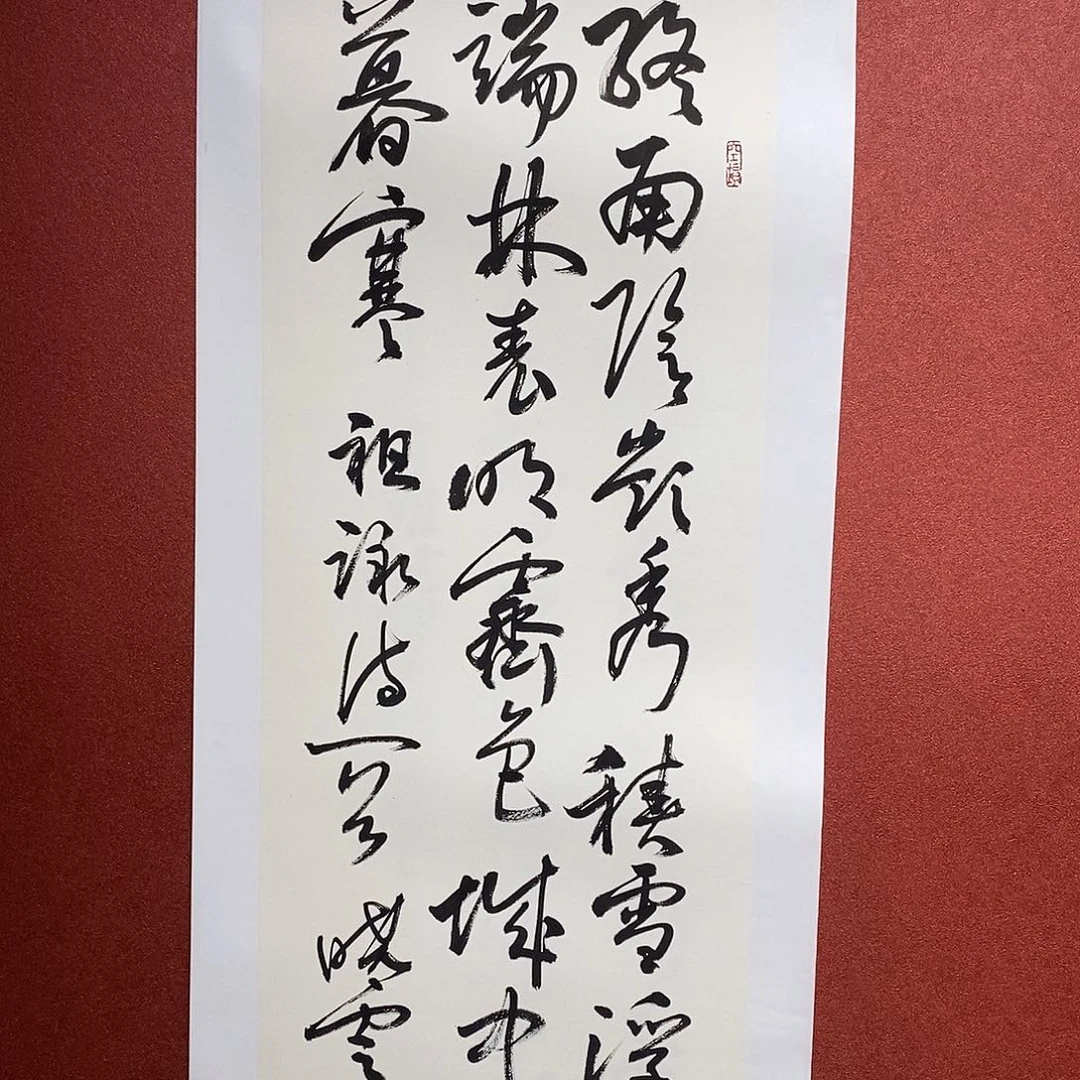 終南陰嶺秀積雪浮
端林表明霽色城中
暮寒 祖詠詩一首 曉雲